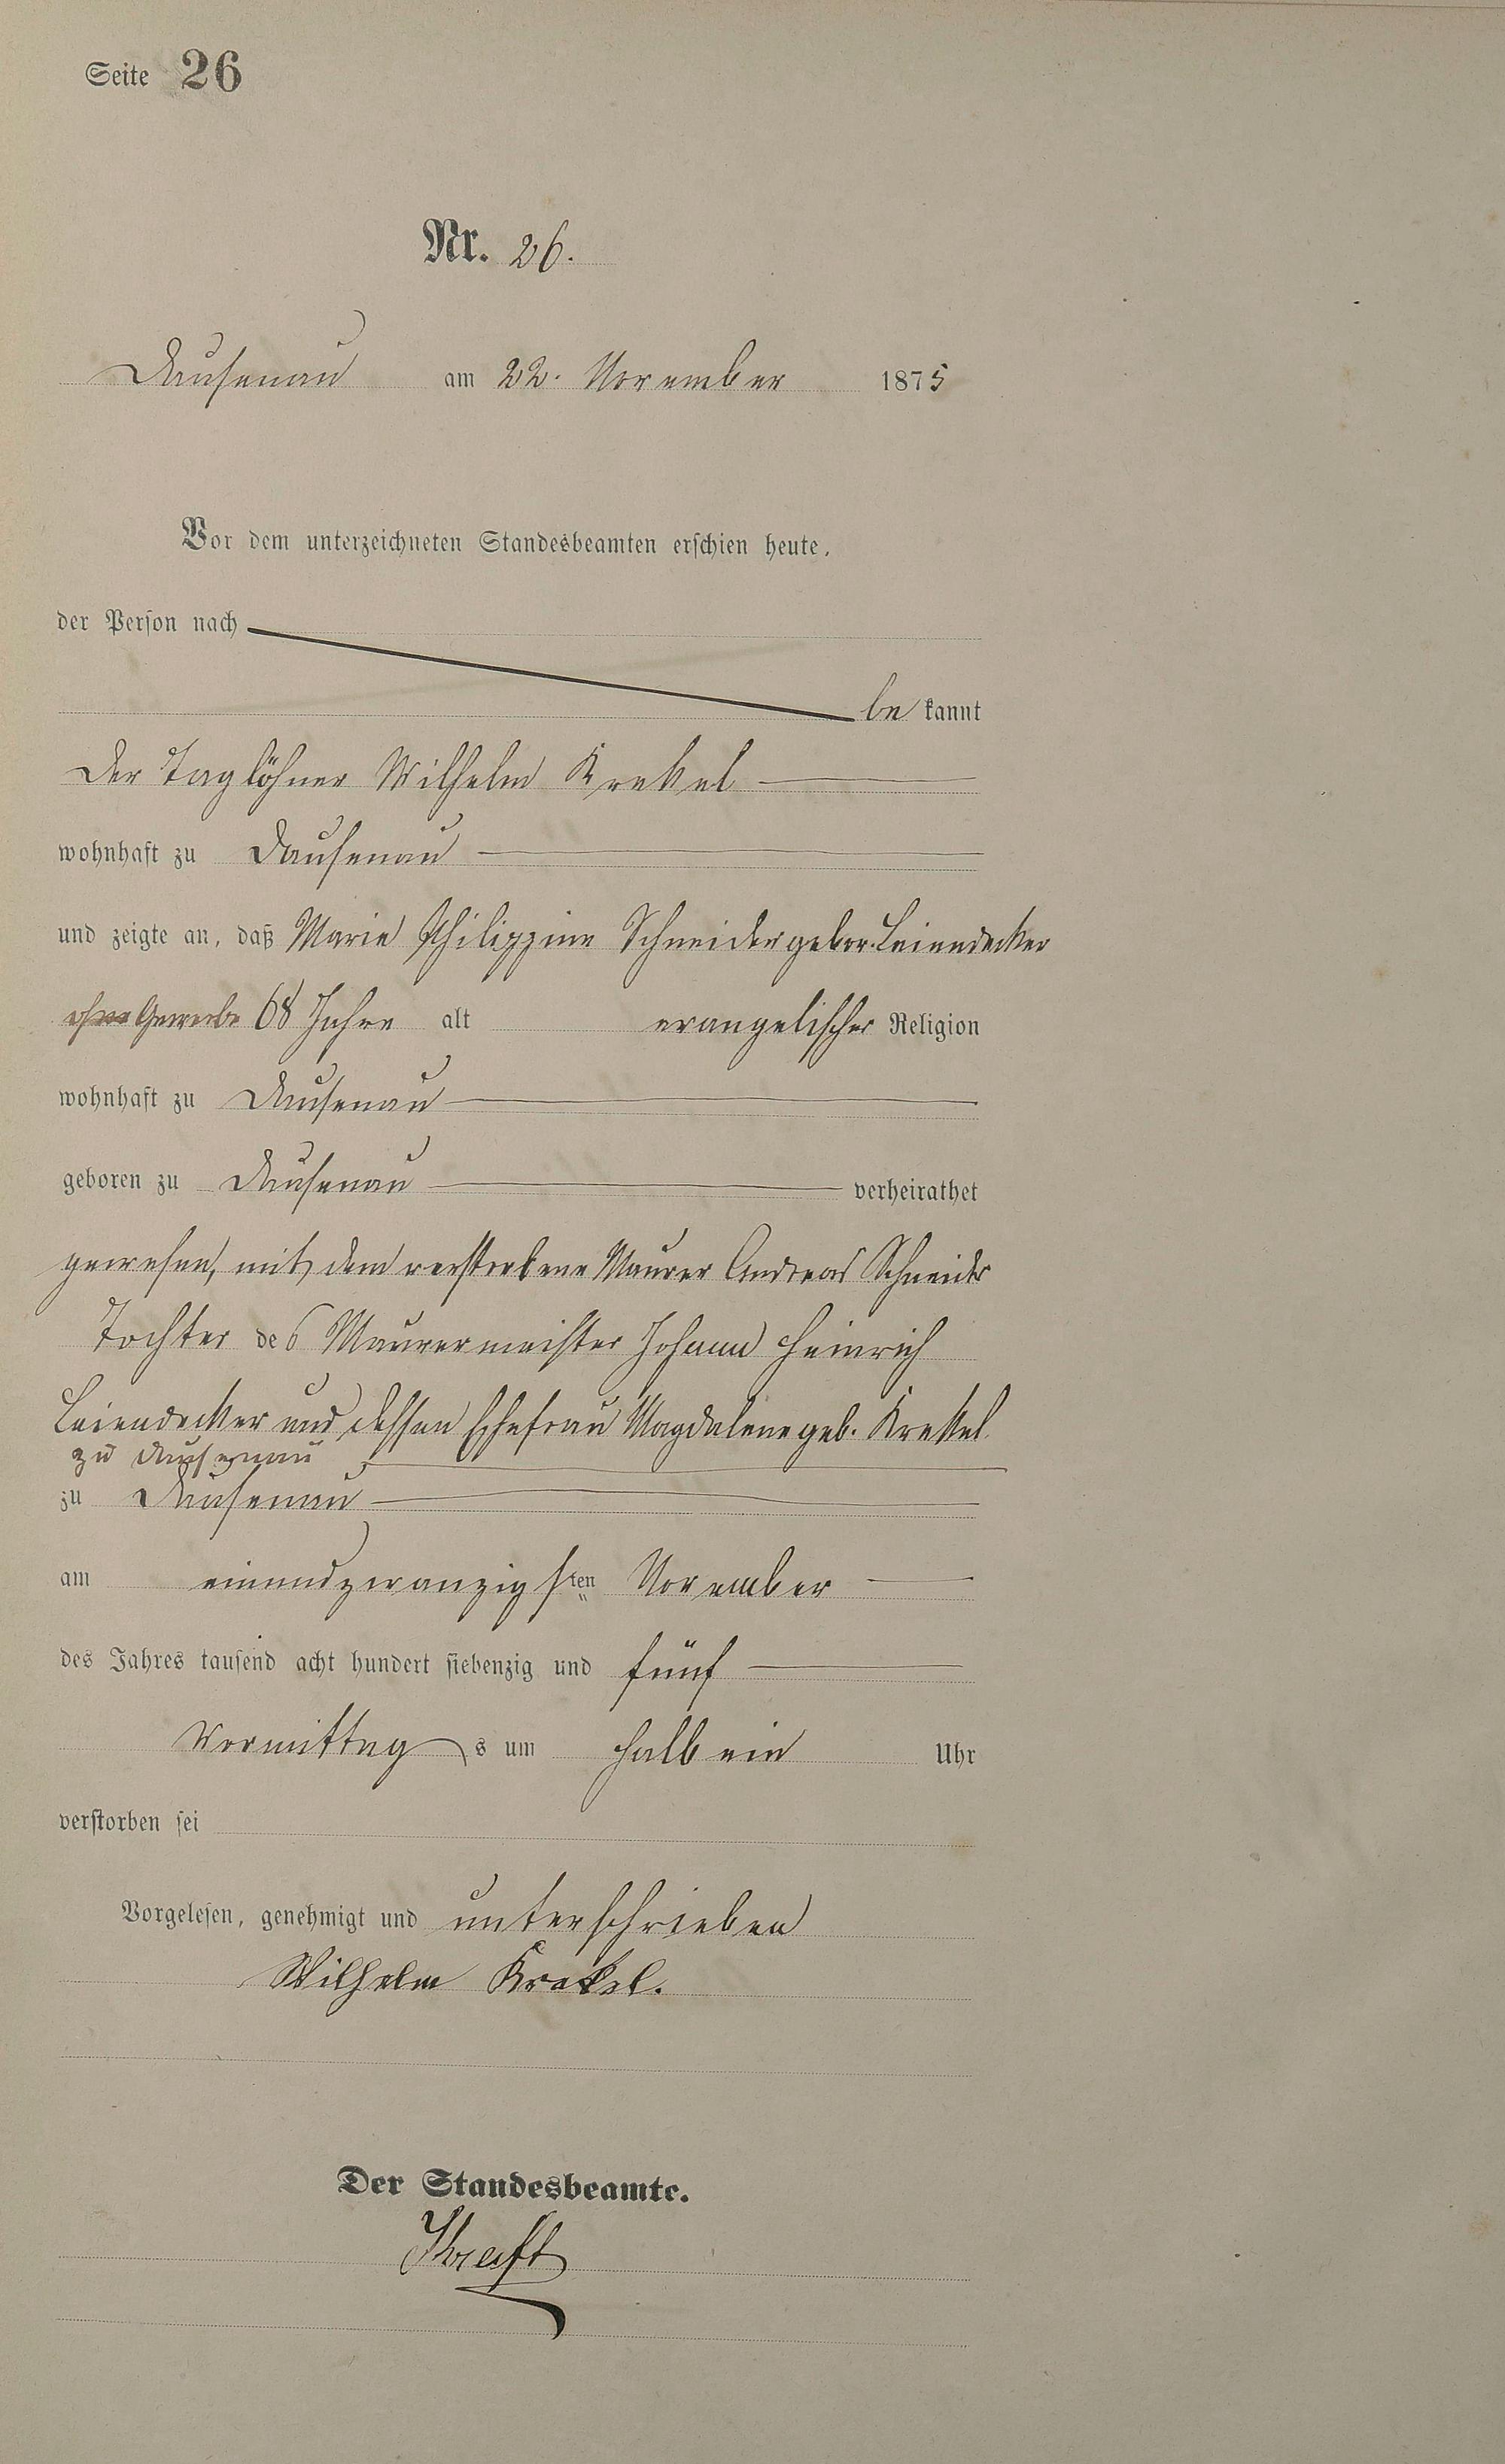 Seite 26
Nr. 26.
Dausenau am 22. November 1875
Vor dem unterzeichneten Standesbeamten erschien heute,
der Person nach
be kannt
der Taglöhner Wilhelm Krekel
wohnhaft zu Dausenau
und zeigte an, daß Marie Philippine Schneider gebor. Leiendecker
ohne Gewerbe 68 Jahre alt evangelischer Religion
wohnhaft zu Dausenau
geboren zu Dausenau verheirathet
gewesen, mit dem verstorbene Maurer Andreas Schneider
Tochter des Maurermeister Johann Heinrich
Leiendecker und dessen Ehefrau Magdalene geb. Krekel
zu Dausenau
zu Dausenau
am einundzwanzigsten November
des Jahres tausend acht hundert siebenzig und fünf
Vormittag s um halb ein Uhr
verstorben sei
Vorgelesen, genehmigt und unterschrieben
Wilhelm Krekel.
Der Standesbeamte.
Kraft